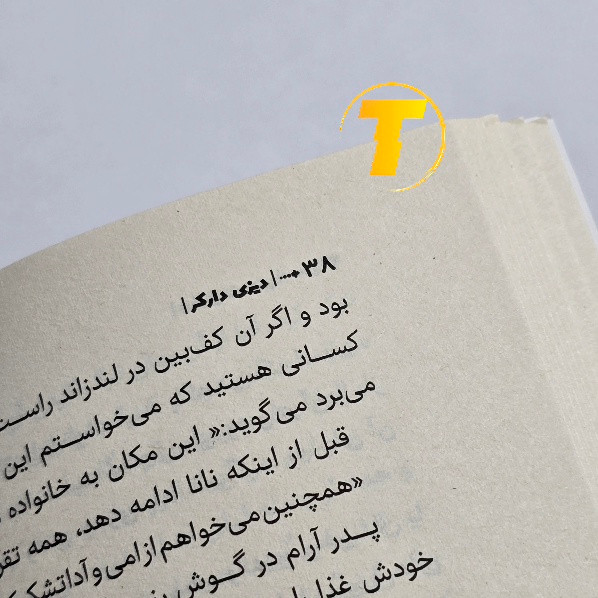 T
۳۸ ... | دیزی دارکر |
بود و اگر آن کف‌بین در لندزاند
کسانی هستید که می‌خواستم این
می‌برد می‌گوید:« این مکان به خانواده
قبل از اینکه نانا ادامه دهد، همه
«همچنین می‌خواهم از امی و آدا
پدر آرام در گوش
خودش غذا